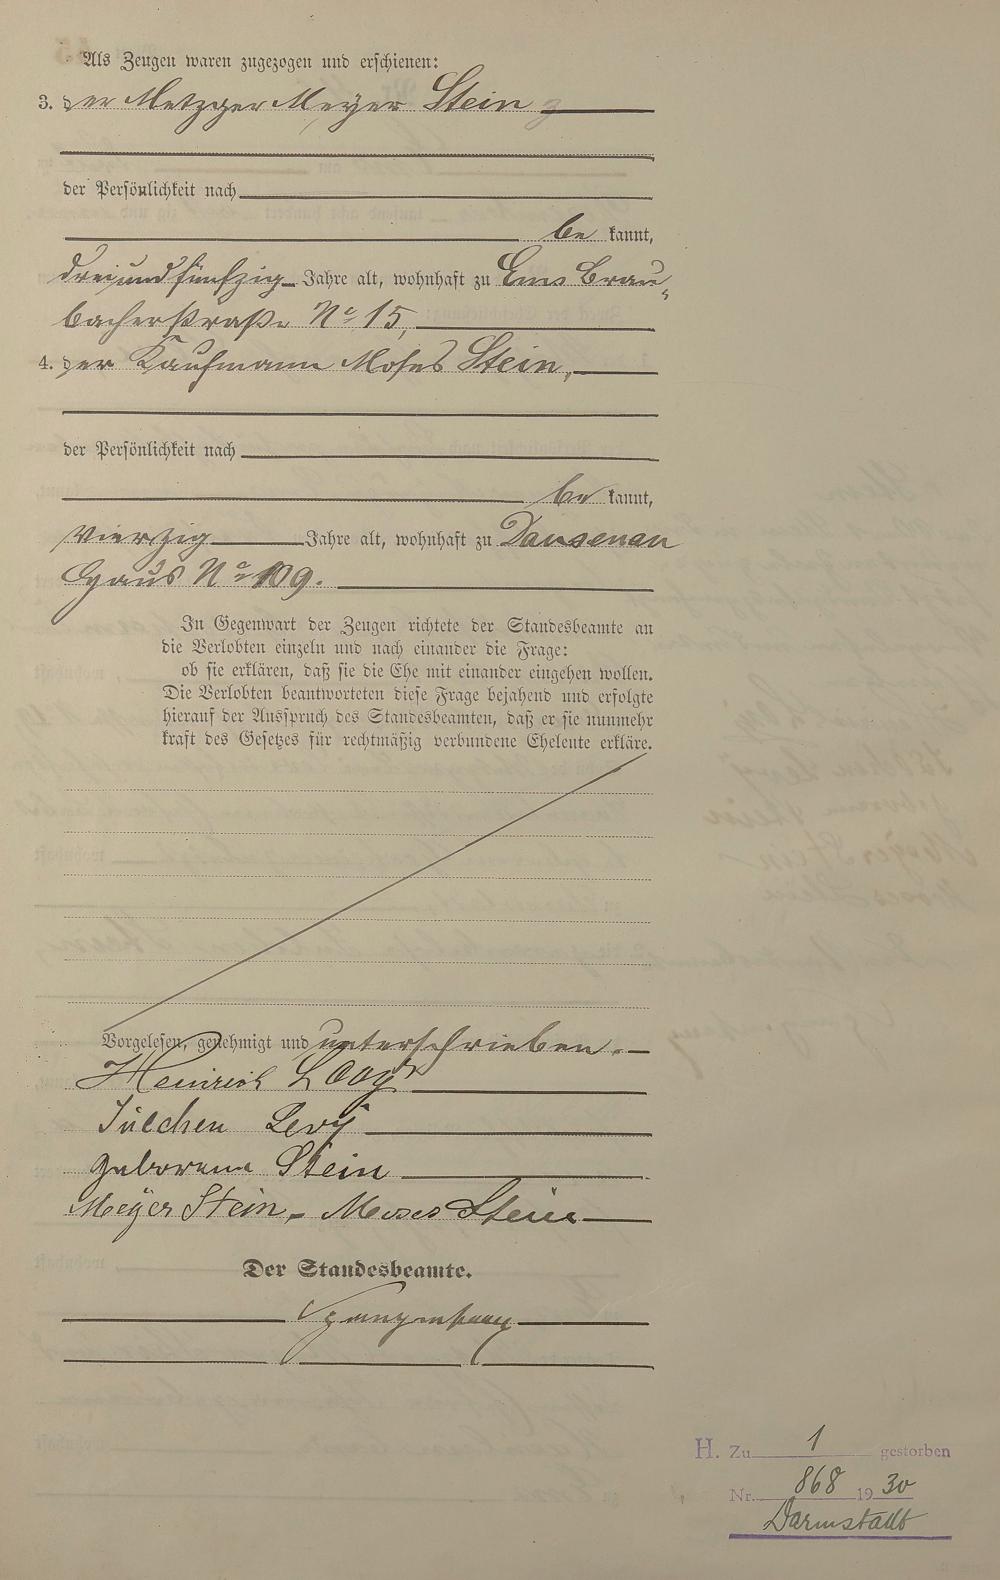 Als Zeugen waren zugezogen und erschienen:
3. der Metzger Meyer Stein
der Persönlichkeit nach
be kannt,
dreiundfünfzig Jahre alt, wohnhaft zu Ems Brau-
bacherstraße No 15,
4. der Kaufmann Moses Stein,
der Persönlichkeit nach
be kannt,
vierzig Jahre alt, wohnhaft zu Dausenau
Haus No 109.
In Gegenwart der Zeugen richtete der Standesbeamte an
die Verlobten einzeln und nach einander die Frage:
ob sie erklären, daß sie die Ehe mit einander eingehen wollen.
Die Verlobten beantworteten diese Frage bejahend und erfolgte
hierauf der Ausspruch des Standesbeamten, daß er sie nunmehr
kraft des Gesetzes für rechtmäßig verbundene Eheleute erkläre.
Vorgelesen, genehmigt und unterschrieben.
Heinrich
Jülchen Levÿ
geborene Stein
Meÿer Stein, Moses Stein
Der Standesbeamte.
H. Zu 1 gestorben
Nr. 868 1930
Darmstadt